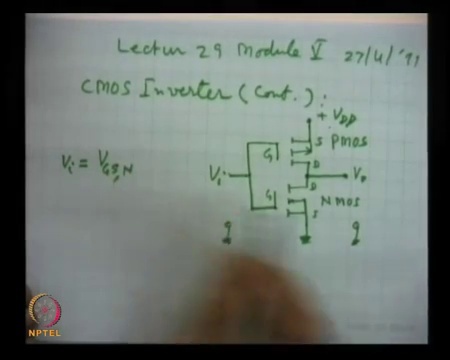 Lectur 29 Module V 27/4/'11
CMOS Inverter (Cont.) :
+ VDD
S PMOS
G
D
Vi = VGS,N
Vi
Vo
D
G
NMOS
S
NPTEL